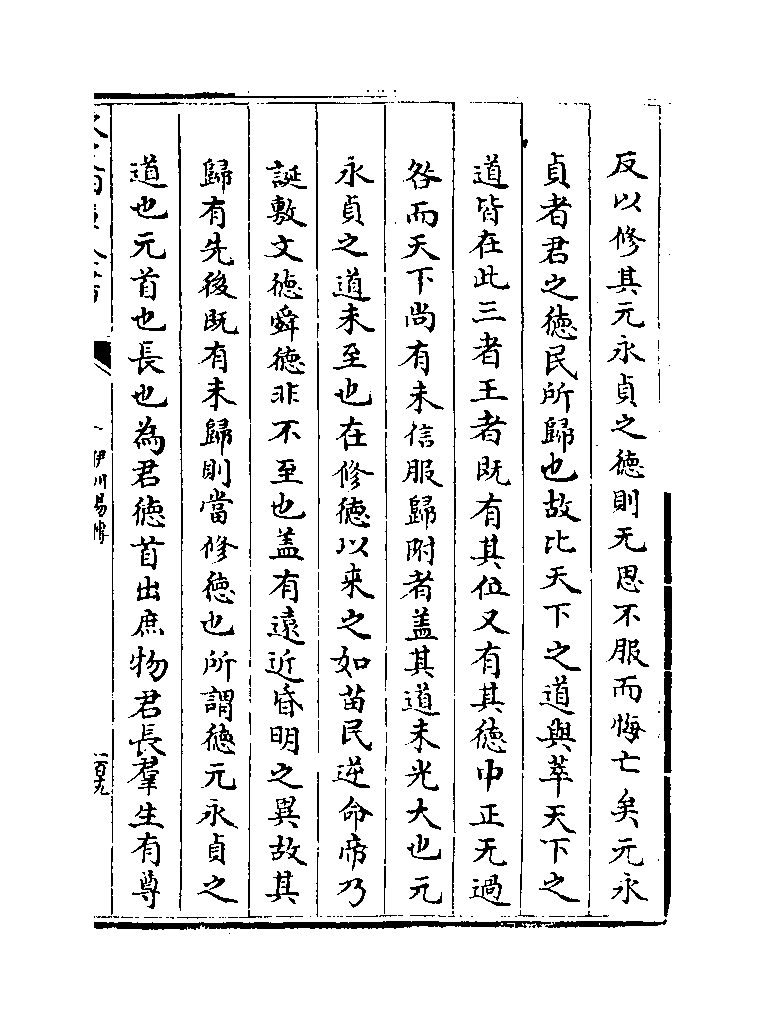 反以修其元永貞之徳則无思不服而悔亡矣元永
貞者君之徳民所歸也故比天下之道與萃天下之
道皆在此三者王者既有其位又有其徳中正无過
咎而天下尚有未信服歸附者盖其道未光大也元
永貞之道未至也在修徳以来之如苗民逆命帝乃
誕敷文徳舜徳非不至也盖有遠近昏明之異故其
歸有先後既有未歸則當修徳也所謂徳元永貞之
道也元首也長也為君徳首出庶物君長羣生有尊
伊川易傳
一百九